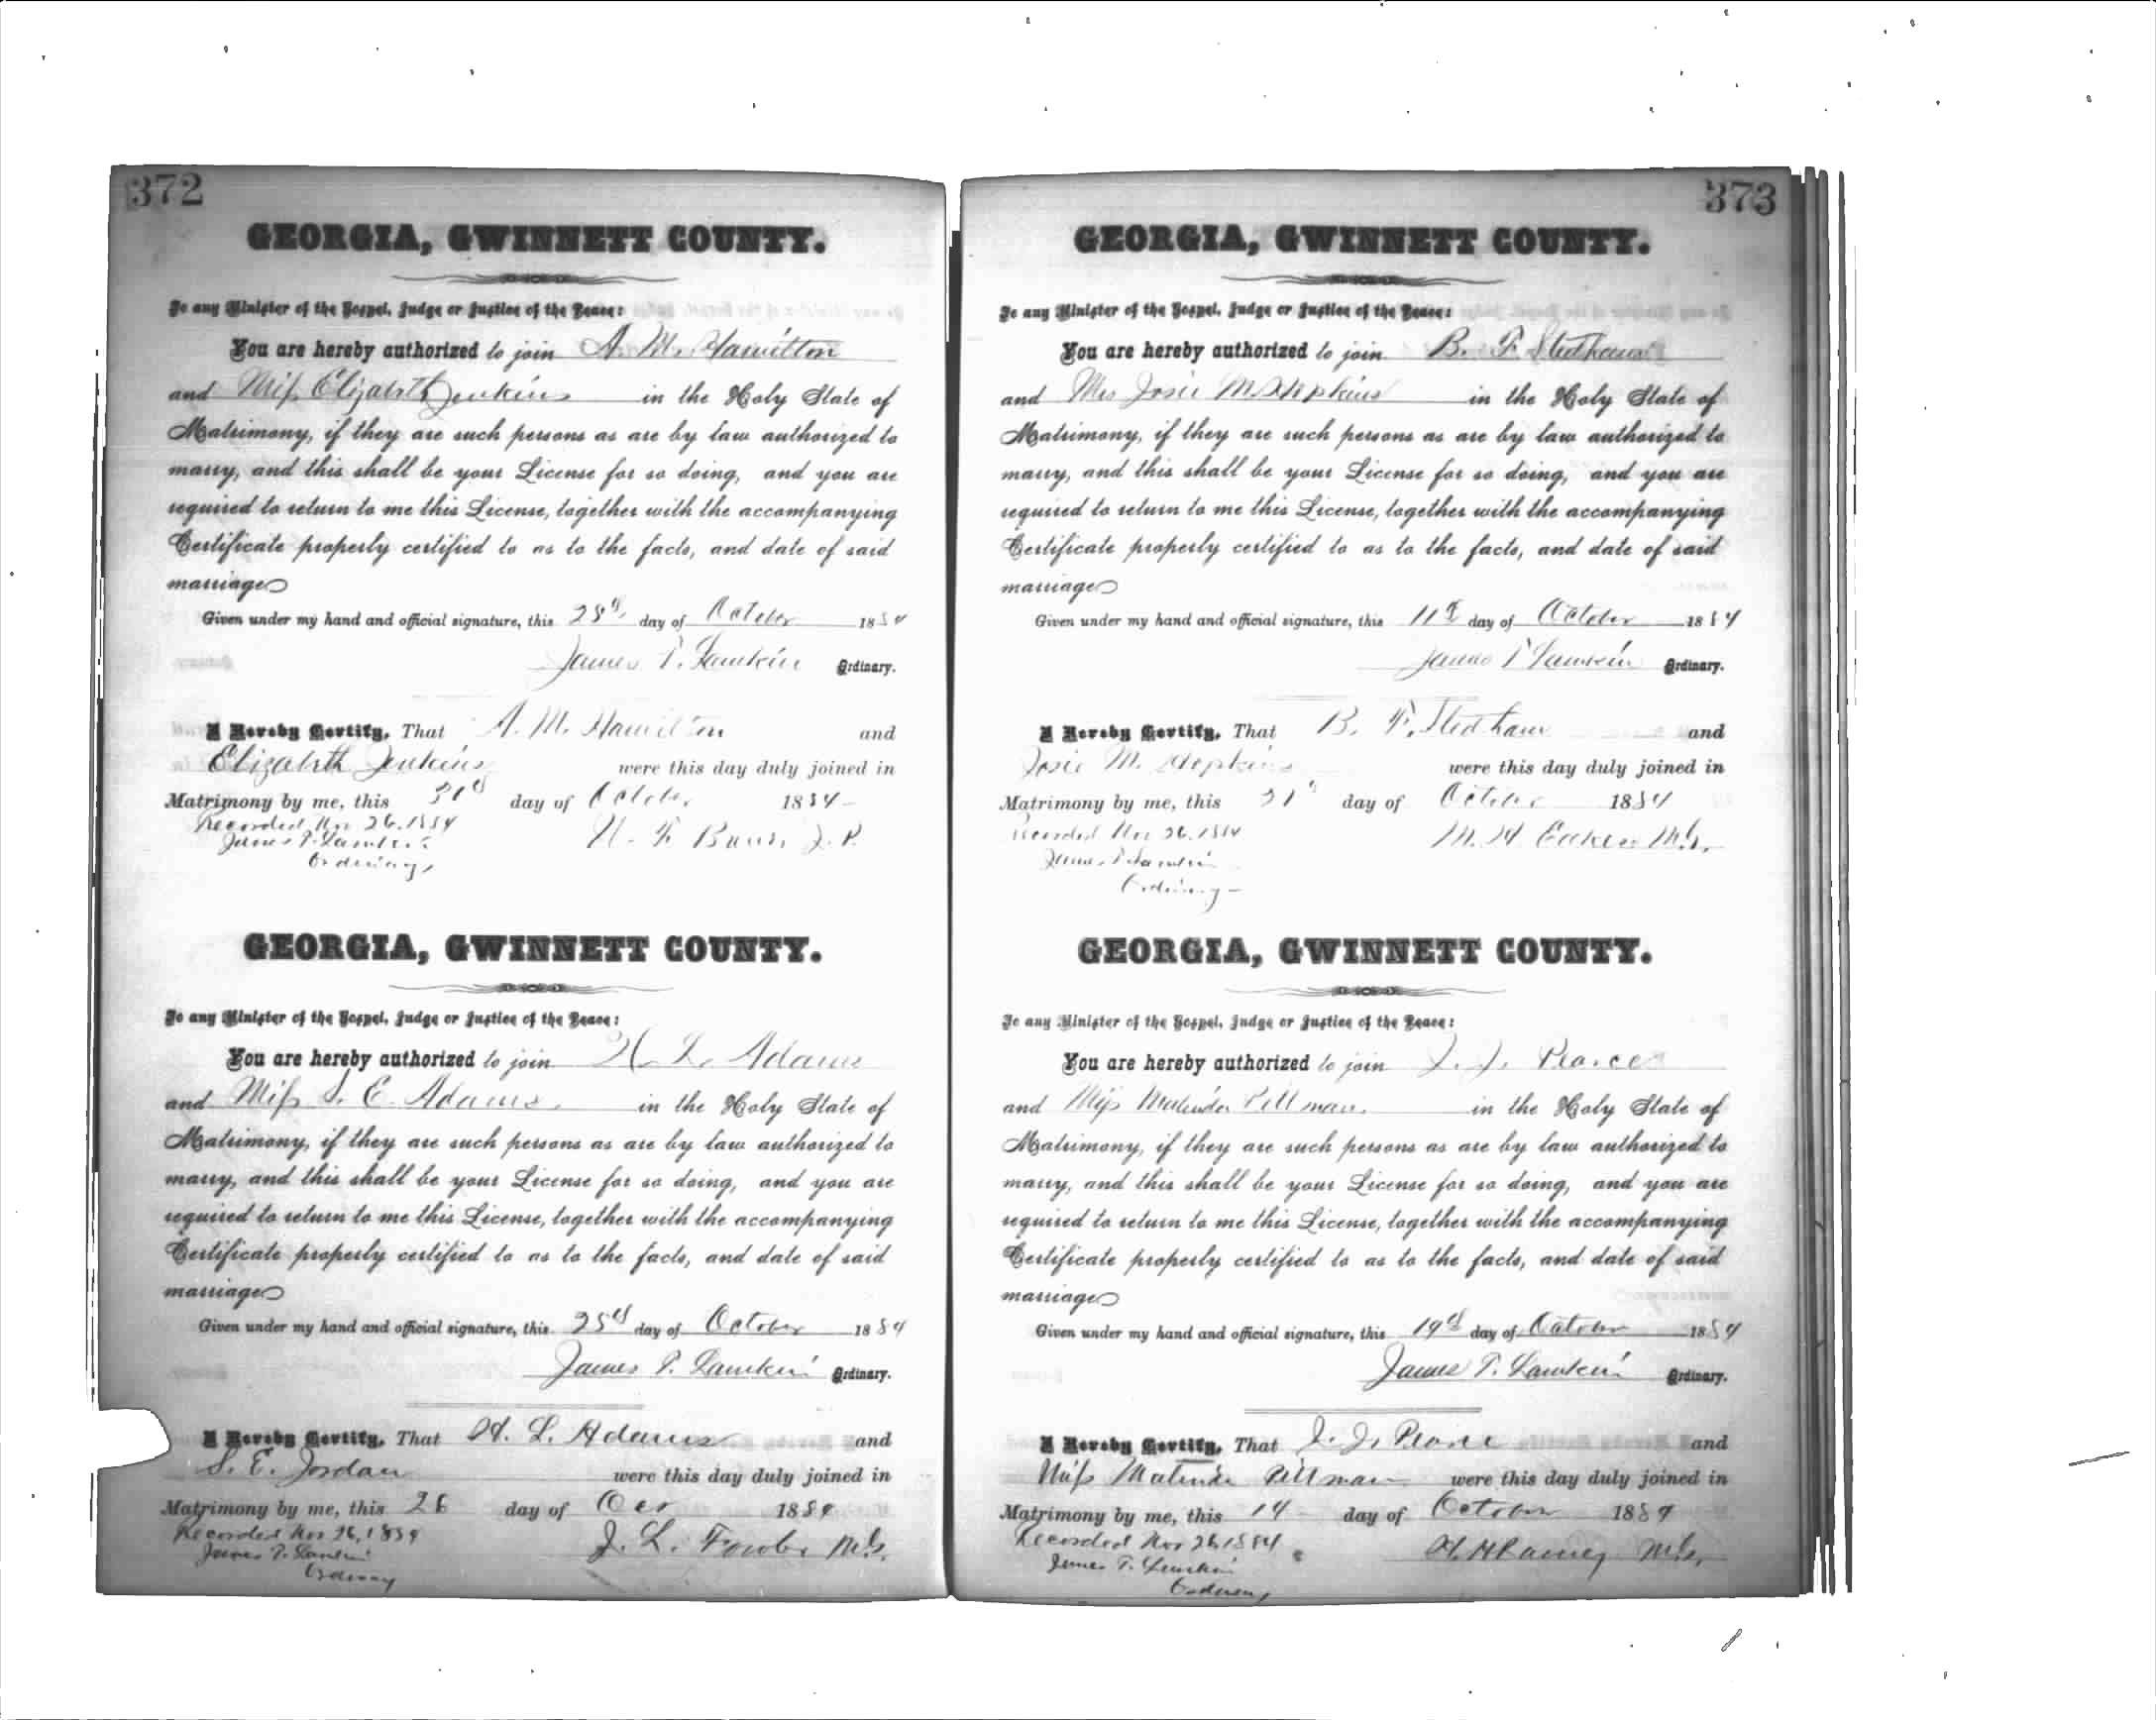 372
GEORGIA, GWINNETT COUNTY.
To any Minister of the Gospel, Judge or Justice of the Peace:
You are hereby authorized to join A. M. Hamilton
and Miss Elizabeth Jenkins in the Holy State of
Matrimony, if they are such persons as are by law authorized to
marry, and this shall be your License for so doing, and you are
required to return to me this License, together with the accompanying
Certificate properly certified to as to the facts, and date of said
marriage
Given under my hand and official signature, this day of October 1884
James T. Lamkin Ordinary.
I Hereby Certify, That A. M. Hamilton and
Elizabeth Jenkins were this day duly joined in
Matrimony by me, this day of October 1884
Recorded Nov 26. 1884
James T. Lamkin
Ordinary,
J. P.
GEORGIA, GWINNETT COUNTY.
To any Minister of the Gospel, Judge or Justice of the Peace:
You are hereby authorized to join H. L. Adams
and Miss S. E. Adams. in the Holy State of
Matrimony, if they are such persons as are by law authorized to
marry, and this shall be your License for so doing, and you are
required to return to me this License, together with the accompanying
Certificate properly certified to as to the facts, and date of said
marriage
Given under my hand and official signature, this 25th day of October 1884
James T. Lamkin Ordinary.
I Hereby Certify, That H. L. Adams and
S. E. Jordan were this day duly joined in
Matrimony by me, this 26 day of Oct 1884
Recorded Nov 26, 1884
James T. Lamkin
Ordinary
J. L. Fowler M.G.
373
GEORGIA, GWINNETT COUNTY.
To any Minister of the Gospel, Judge or Justice of the Peace:
You are hereby authorized to join B. F. Stedham
and Josie M. Hopkins in the Holy State of
Matrimony, if they are such persons as are by law authorized to
marry, and this shall be your License for so doing, and you are
required to return to me this License, together with the accompanying
Certificate properly certified to as to the facts, and date of said
marriage
Given under my hand and official signature, this 11th day of October 1884
James T Lamkin Ordinary.
I Hereby Certify, That B. F. Stedham and
Josie M. Hopkins were this day duly joined in
Matrimony by me, this day of October 1884
Recorded Nov 26. 1884
James T. Lamkin
Ordinary
M. H. M.G.
GEORGIA, GWINNETT COUNTY.
To any Minister of the Gospel, Judge or Justice of the Peace:
You are hereby authorized to join J. J. Pearce
and Miss Malinda Pittman. in the Holy State of
Matrimony, if they are such persons as are by law authorized to
marry, and this shall be your License for so doing, and you are
required to return to me this License, together with the accompanying
Certificate properly certified to as to the facts, and date of said
marriage
Given under my hand and official signature, this day of October 1884
James T. Lamkin Ordinary.
I Hereby Certify, That J. J. Pearce and
Miss Malinda Pittman were this day duly joined in
Matrimony by me, this 14 day of October 1884
Recorded Nov 26 1884
James T. Lamkin
Ordinary,
M.G.